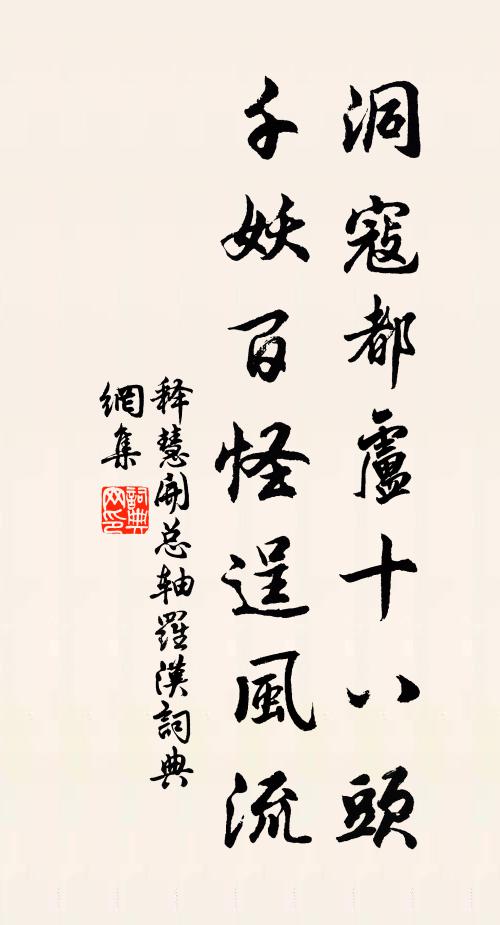 洞寇都盧十八頭
千妖百怪逞風流
释慧開总轴羅漢詞典
網集
詞典
网印